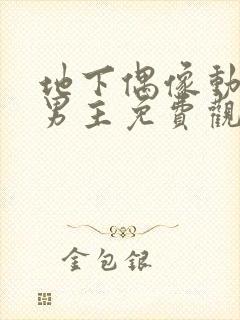 地下偶像動
男主免費觀
金包銀